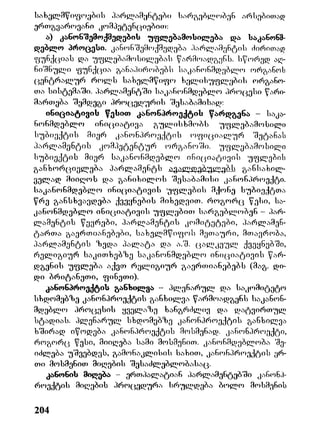 სახელმწიფოების პარლამენტები სარგებლობენ არსებითად
ერთგვაროვანი კომპეტენციებით:
ა) კანონშემოქმედების უფლებამოსილება და საკანონ-
მდებლო პროცესი. კანონშემოქმედება პარლამენტის ძირითად
ფუნქციას და უფლებამოსილებას წარმოადგენს. სწორედ აღ-
ნიშნული ფუნქცია განაპირობებს საკანონმდებლო ორგანოს
ცენტრალურ როლს სახელმწიფო ხელისუფლების ორგანო-
თა სისტემაში. პარლამენტში საკანონმდებლო პროცესი წარი-
მართება შემდეგი პროცედურის შესაბამისად:
ინიციატივის წესით კანონპროექტის წარდგენა – საკა-
ნონმდებლო ინიციატივა გულისხმობს უფლებამოსილი
სუბიექტის მიერ კანონპროექტის ოფიციალურ შეტანას
პარლამენტის კომპეტენტურ ორგანოში. უფლებამოსილი
სუბიექტის მიერ საკანონმდებლო ინიციატივის უფლების
განხორციელება პარლამენტს ავალდებულებს განსახილ-
ველად მიიღოს და განიხილოს შესაბამისი კანონპროექტი.
საკანონმდებლო ინიციატივის უფლების მქონე სუბიექტთა
წრე განსხვავდება ქვეყნების მიხედვით. როგორც წესი, სა-
კანონმდებლო ინიციატივის უფლებით სარგებლობენ – პარ-
ლამენტის წევრები, პარლამენტის კომიტეტები, პარლამენ-
ტართა გაერთიანებები, სახელმწიფოს მეთაური, მთავრობა,
პარლამენტის ზედა პალატა და ა.შ. ცალკეულ ქვეყნებში,
რელიგიურ საკითხებზე საკანონმდებლო ინიციატივის წარ-
დგენის უფლება აქვთ რელიგიურ გაერთიანებებს (მაგ. დი-
დი ბრიტანეთი, ფინეთი).
კანონპროექტის განხილვა – პლენარულ და საკომიტეტო
სხდომებზე კანონპროექტის განხილვა წარმოადგენს საკანონ-
მდებლო პროცესის ყველაზე ხანგრძლივ და დატვირთულ
სტადიას. პლენარულ სხდომებზე კანონპროექტის განხილვა
ხშირად იწოდება კანონპროექტის მოსმენად. კანონპროექტი,
როგორც წესი, მიიღება სამი მოსმენით. კანონმდებლობა შე-
იძლება უშვებდეს, გამონაკლისის სახით, კანონპროექტის ერ-
თი მოსმენით მიღების შესაძლებლობასაც.
კანონის მიღება – ერთპალატიან პარლამენტებში კანონპ-
როექტის მიღების პროცედურა სრულდება ბოლო მოსმენის
204